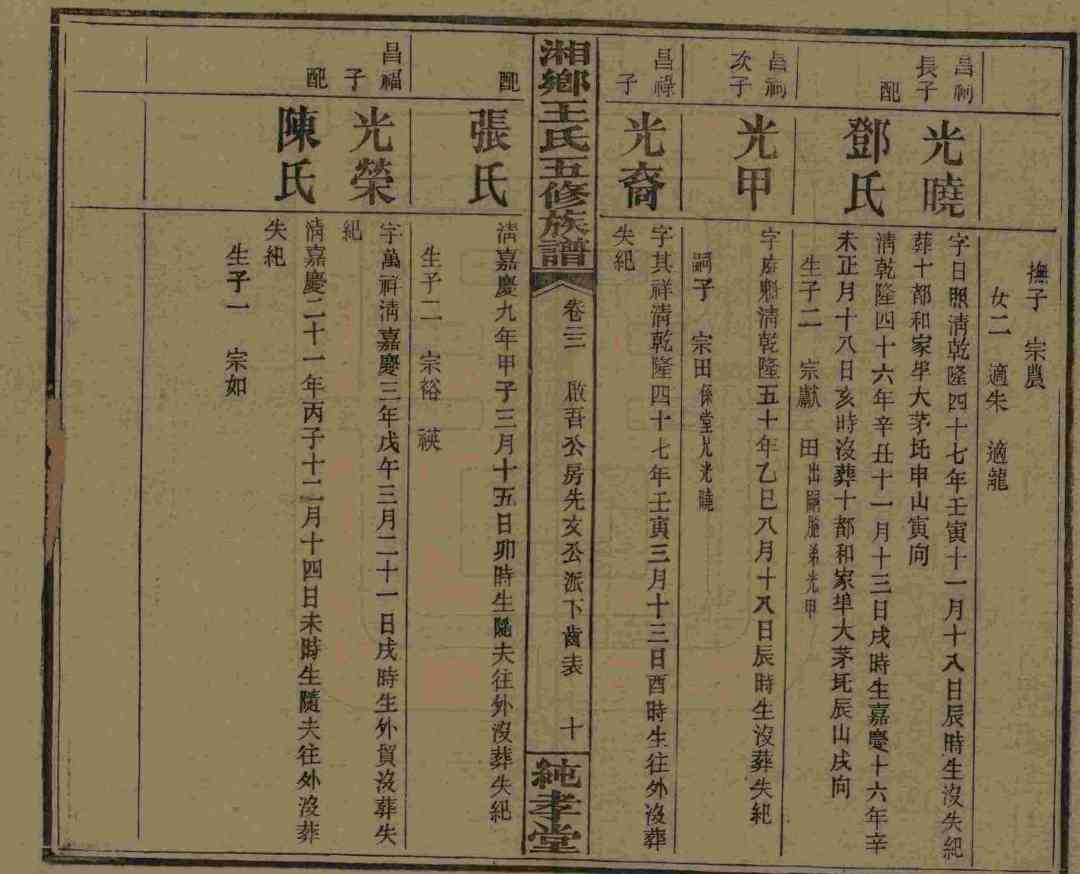 撫子 宗農
女二 適朱 適龍
昌祠
長子
光曉
字日照清乾隆四十七年壬寅十一月十八日辰時生沒失紀
葬十都和家埠大茅坵申山寅向
配
鄧氏
清乾隆四十六年辛丑十一月十三日戌時生嘉慶十六年辛
未正月十八日亥時沒葬十都和家埠大茅坵辰山戌向
生子二 宗獻 田出嗣胞弟光甲
昌祠
次子
光甲
字 魁清乾隆五十年乙巳八月十八日辰時生沒葬失紀
嗣子 宗田係堂兄光曉
昌祿
子
光裔
字其祥清乾隆四十七年壬寅三月十三日酉時生往外沒葬
失紀
湘鄉王氏五修族譜
卷三 啟吾公房先文公派下齒表 十
純孝堂
配
張氏
清嘉慶九年甲子三月十五日卯時生隨夫往外沒葬失紀
生子二 宗裕 祦
昌福
子
光榮
字萬祥清嘉慶三年戊午三月二十一日戌時生外貿沒葬失
紀
配
陳氏
清嘉慶二十一年丙子十二月十四日未時生隨夫往外沒葬
失紀
生子一 宗如